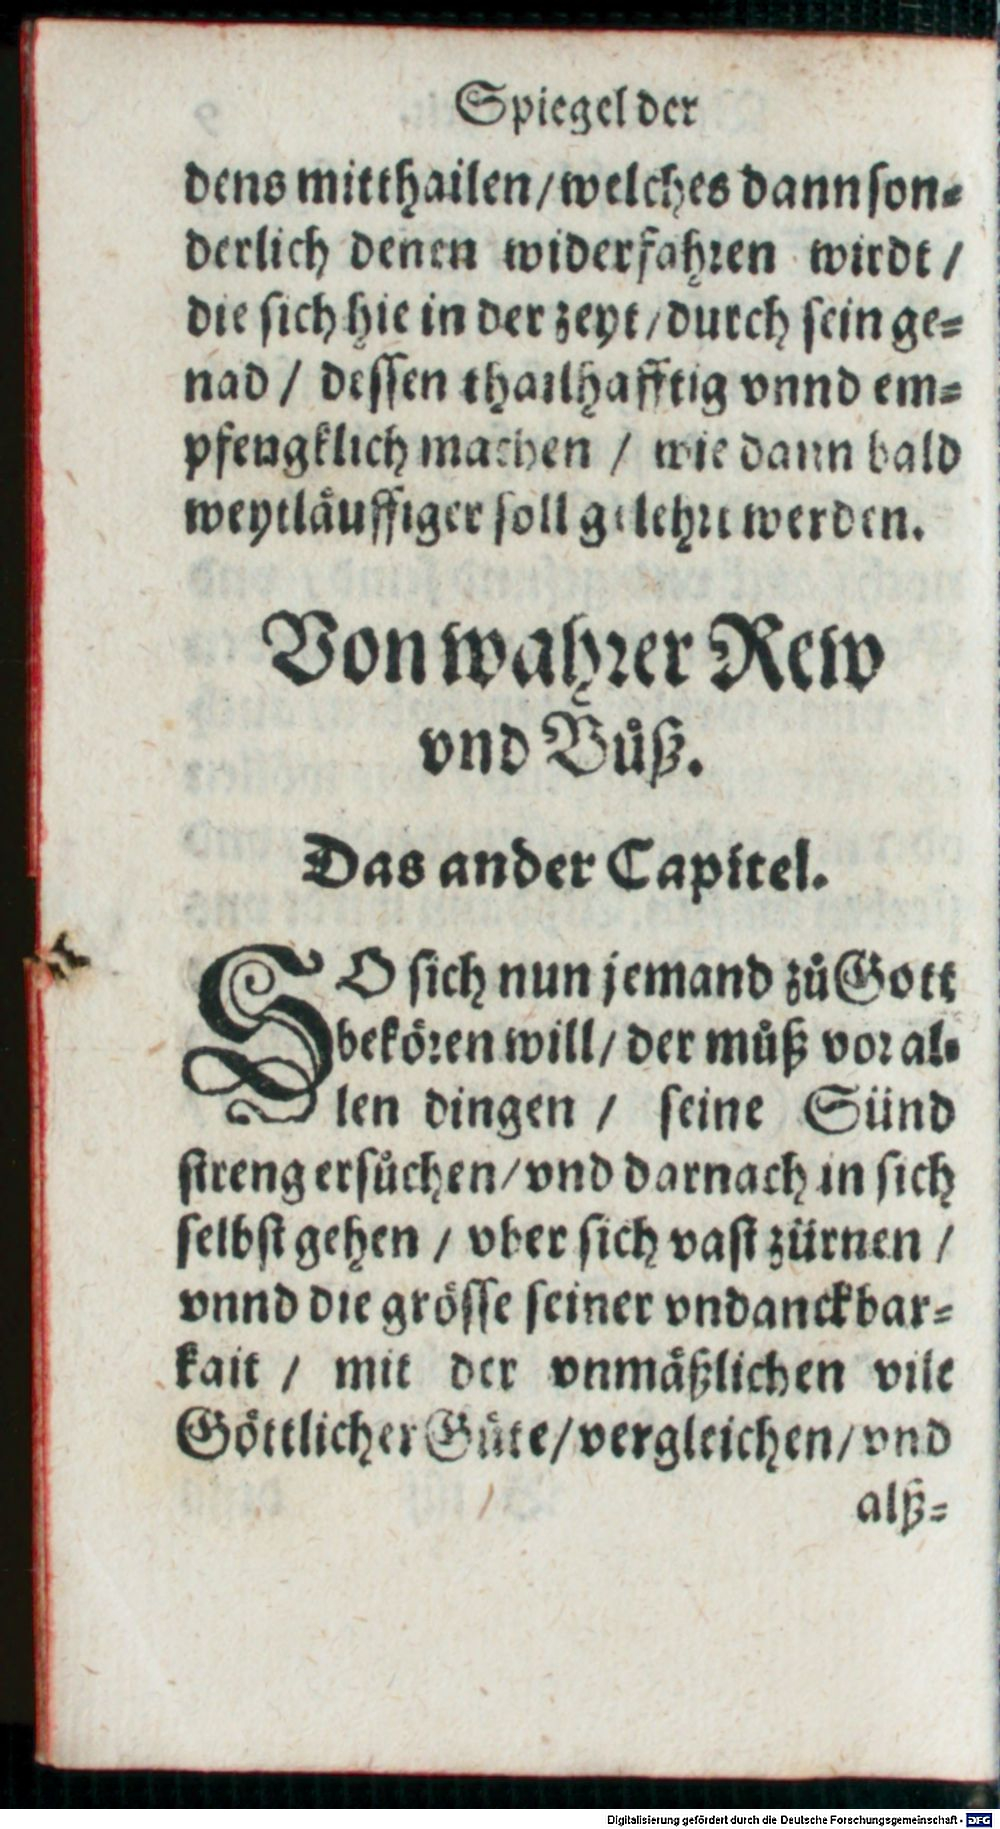 Spiegel der
dens mitthailen / welches dann son⸗
derlich denen widerfahren wirdt /
die sich hie in der zeyt / durch sein ge⸗
nad / dessen thailhafftig vnnd em⸗
pfengklich machen / wie dann bald
weytläuffiger soll gelehrt werden.
Von wahrer Rew
vnd Bůß.
Das ander Capitel.
SO sich nun jemand zů Gott
bekören will / der můß vor al⸗
len dingen / seine Sünd
streng ersůchen / vnd darnach in sich
selbst gehen / vber sich vast zürnen /
vnnd die grösse seiner vndanckbar⸗
kait / mit der vnmäßlichen vile
Göttlicher Güte / vergleichen / vnd
alß⸗
Digitalisierung gefördert durch die Deutsche Forschungsgemeinschaft - DFG